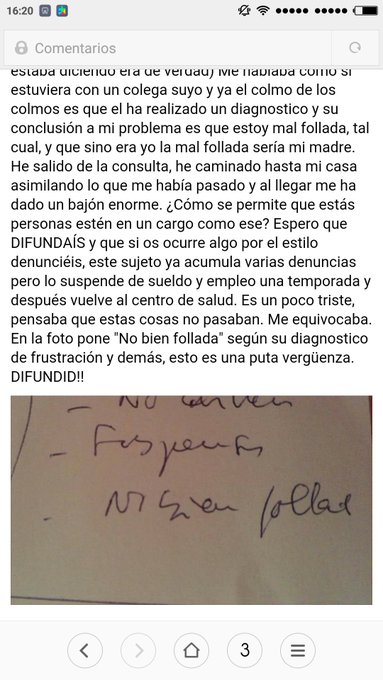 16:20
Comentarios
estaba diciendo era de verdad) Me hablaba como si
estuviera con un colega suyo y ya el colmo de los
colmos es que el ha realizado un diagnostico y su
conclusión a mi problema es que estoy mal follada, tal
cual, y que sino era yo la mal follada sería mi madre.
He salido de la consulta, he caminado hasta mi casa
asimilando lo que me había pasado y al llegar me ha
dado un bajón enorme. ¿Cómo se permite que estás
personas estén en un cargo como ese? Espero que
DIFUNDAÍS y que si os ocurre algo por el estilo
denunciéis, este sujeto ya acumula varias denuncias
pero lo suspende de sueldo y empleo una temporada y
después vuelve al centro de salud. Es un poco triste,
pensaba que estas cosas no pasaban. Me equivocaba.
En la foto pone "No bien follada" según su diagnostico
de frustración y demás, esto es una puta vergüenza.
DIFUNDID!!
- No
-
- bien follad
3